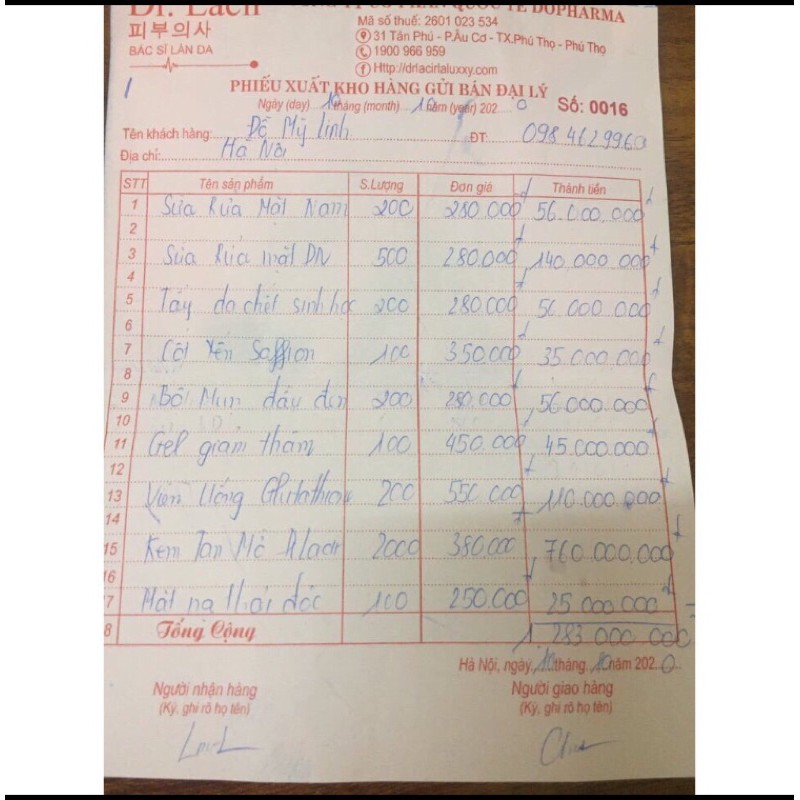 Dr. Lacir
피부의사
BÁC SĨ LÀN DA
CÔNG TY CỔ PHẦN QUỐC TẾ DOPHARMA
Mã số thuế: 2601 023 534
31 Tân Phú - P.Âu Cơ - TX.Phú Thọ - Phú Thọ
1900 966 959
Http://drlacirlaluxxy.com
PHIẾU XUẤT KHO HÀNG GỬI BÁN ĐẠI LÝ
Ngày (day) 10 tháng (month) 10 năm (year) 2020 Số: 0016
Tên khách hàng: Đỗ Mỹ Linh ĐT: 0984629960
Địa chỉ: Hà Nội
STT Tên sản phẩm S.Lượng Đơn giá Thành tiền
1 Sữa Rửa Mặt Nam 200 280.000đ 56.000.000đ
2
3 Sữa Rửa mặt DN 500 280.000đ 140.000.000đ
4
5 Tẩy da chết sinh học 200 280.000đ 56.000.000đ
6
7 Cốt Yến Saffron 100 350.000đ 35.000.000đ
8
9 Bôi Mụn đầu đen 200 280.000đ 56.000.000đ
10
11 Gel giảm thâm 100 450.000đ 45.000.000đ
12
13 Viên Uống Glutathione 200 550.000đ 110.000.000đ
14
15 Kem Tan Mỡ 2000 380.000đ 760.000.000đ
16
17 Mặt nạ thải độc 100 250.000đ 25.000.000đ
18 Tổng Cộng 1.283.000.000
Hà Nội, ngày 10 tháng 10 năm 2020
Người nhận hàng Người giao hàng
(Ký, ghi rõ họ tên) (Ký, ghi rõ họ tên)